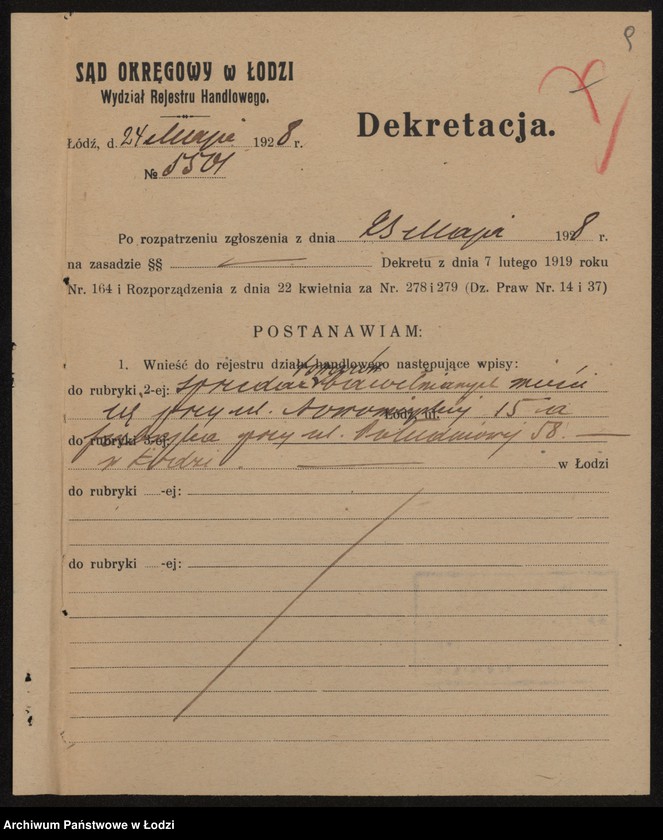 9
SĄD OKRĘGOWY w ŁODZI
Wydział Rejestru Handlowego.
Dekretacja.
Łódź, d. 24 Maja 1928 r.
№ 5501
Po rozpatrzeniu zgłoszenia z dnia 23 Maja 1928 r.
na zasadzie §§ Dekretu z dnia 7 lutego 1919 roku
Nr. 164 i Rozporządzenia z dnia 22 kwietnia za Nr. 278 i 279 (Dz. Praw Nr. 14 i 37)
POSTANAWIAM:
1. Wnieść do rejestru działu handlowego następujące wpisy:
towarów
do rubryki 2-ej: sprzedaż bawełnianych mieści
się przy ul. Łódź, ul. 15 a
do rubryki 3-ej: przy ul. Południowej 58.
w Łodzi w Łodzi
do rubryki -ej:
do rubryki -ej:
Archiwum Państwowe w Łodzi